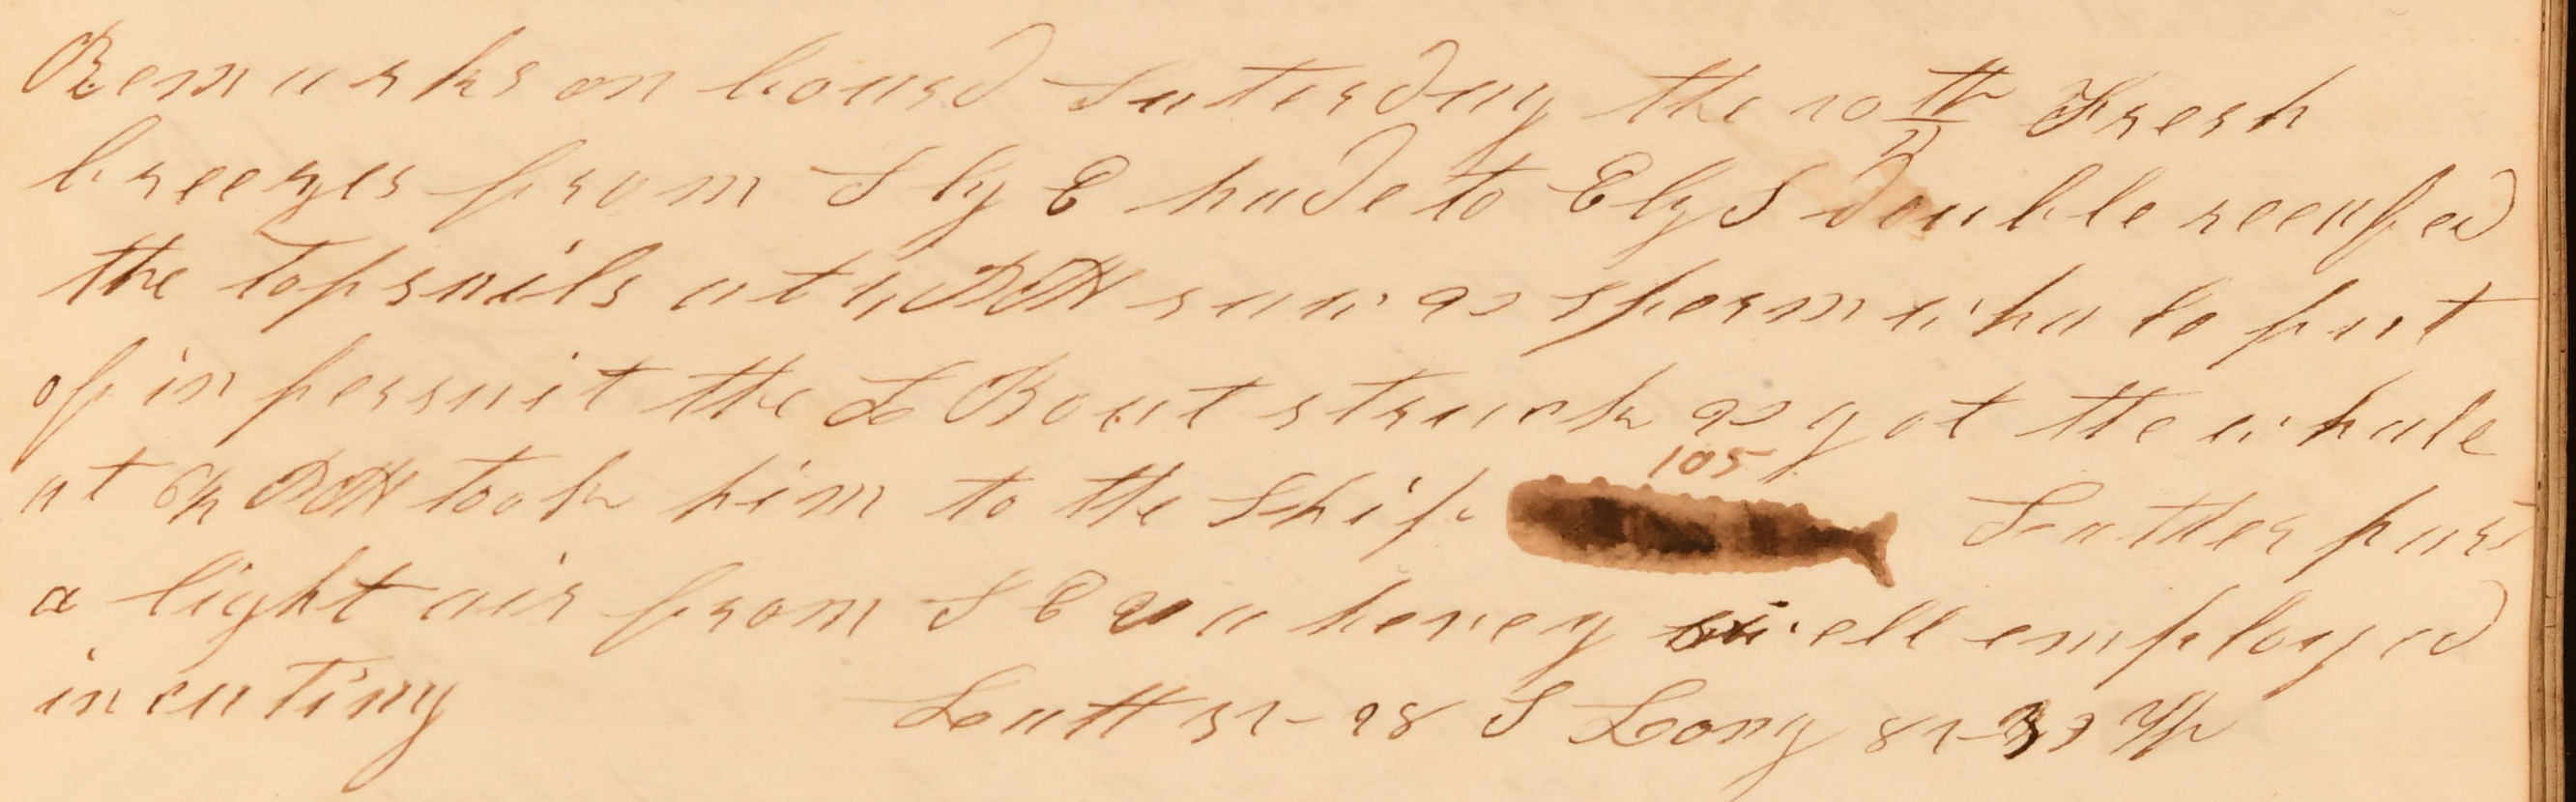 Remarks on board Saterday the 10th Fresh
breezes from Sly E hade to Ely S double reeafed
the Topsails at 1, PM saw a sperm wha le put
of in persuit the L Boat struck & got the whale
at 6h PM took him to the Ship 105 Latter part
a light air from S E & a hevey swell employed
in cuting Latt 31-28 S Long 81-39 W